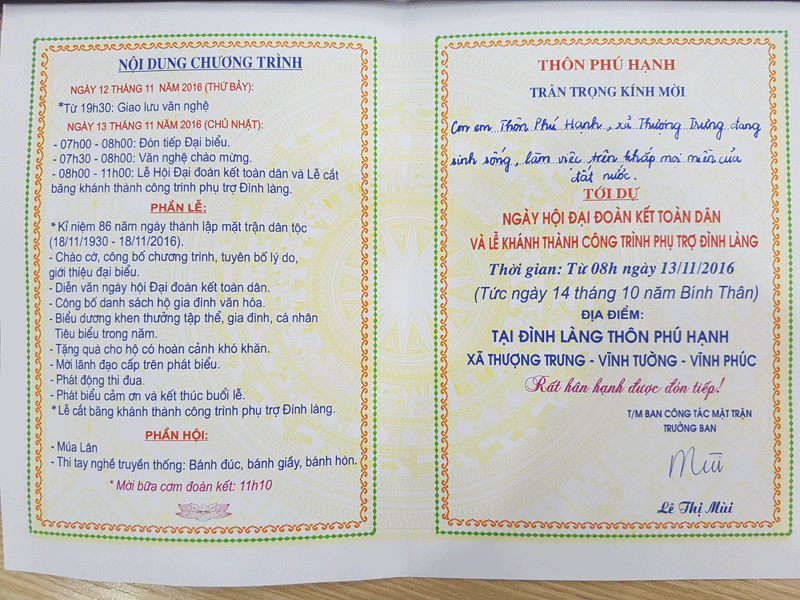 NỘI DUNG CHƯƠNG TRÌNH
NGÀY 12 THÁNG 11 NĂM 2016 (THỨ BẢY):
*Từ 19h30: Giao lưu văn nghệ
NGÀY 13 THÁNG 11 NĂM 2016 (CHỦ NHẬT):
- 07h00 - 08h00: Đón tiếp Đại biểu.
- 07h30 - 08h00: Văn nghệ chào mừng.
- 08h00 - 11h00: Lễ Hội Đại đoàn kết toàn dân và Lễ cắt
băng khánh thành công trình phụ trợ Đình làng.
PHẦN LỄ:
* Kỉ niệm 86 năm ngày thành lập mặt trận dân tộc
(18/11/1930 - 18/11/2016).
- Chào cờ, công bố chương trình, tuyên bố lý do,
giới thiệu đại biểu.
- Diễn văn ngày Hội Đại đoàn kết toàn dân.
- Công bố danh sách hộ gia đình văn hóa.
- Biểu dương khen thưởng tập thể, gia đình, cá nhân
Tiêu biểu trong năm.
- Tặng quà cho hộ có hoàn cảnh khó khăn.
- Mời lãnh đạo cấp trên phát biểu.
- Phát động thi đua.
- Phát biểu cảm ơn và kết thúc buổi lễ.
* Lễ cắt băng khánh thành công trình phụ trợ Đình làng.
PHẦN HỘI:
- Múa Lân
- Thi tay nghề truyền thống: Bánh đúc, bánh giầy, bánh hòn.
* Mời bữa cơm đoàn kết: 11h10
THÔN PHÚ HẠNH
TRÂN TRỌNG KÍNH MỜI
Con em Thôn Phú Hạnh, xã Thượng Trưng đang
sinh sống, làm việc trên khắp mọi miền của
đất nước.
TỚI DỰ
NGÀY HỘI ĐẠI ĐOÀN KẾT TOÀN DÂN
VÀ LỄ KHÁNH THÀNH CÔNG TRÌNH PHỤ TRỢ ĐÌNH LÀNG
Thời gian: Từ 08h ngày 13/11/2016
(Tức ngày 14 tháng 10 năm Bính Thân)
ĐỊA ĐIỂM:
TẠI ĐÌNH LÀNG THÔN PHÚ HẠNH
XÃ THƯỢNG TRƯNG - VĨNH TƯỜNG - VĨNH PHÚC
Rất hân hạnh được đón tiếp!
T/M BAN CÔNG TÁC MẶT TRẬN
TRƯỞNG BAN
Mùi
Lê Thị Mùi